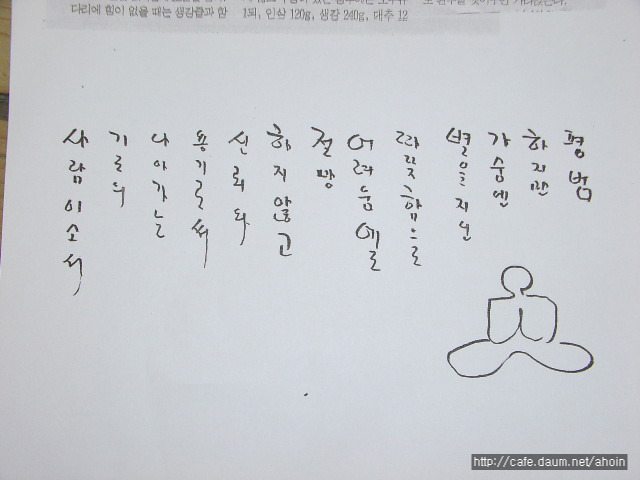 다리에 힘이 없을 때는 생강즙과 함
1되, 인삼 120g, 생강 240g, 대추 12
평범
하지만
가슴엔
별을지닌
따뜻함으로
어려움에도
절망
하지않고
신뢰와
용기로써
나아가는
기도의
사람이소서
http://cafe.daum.net/ahoin